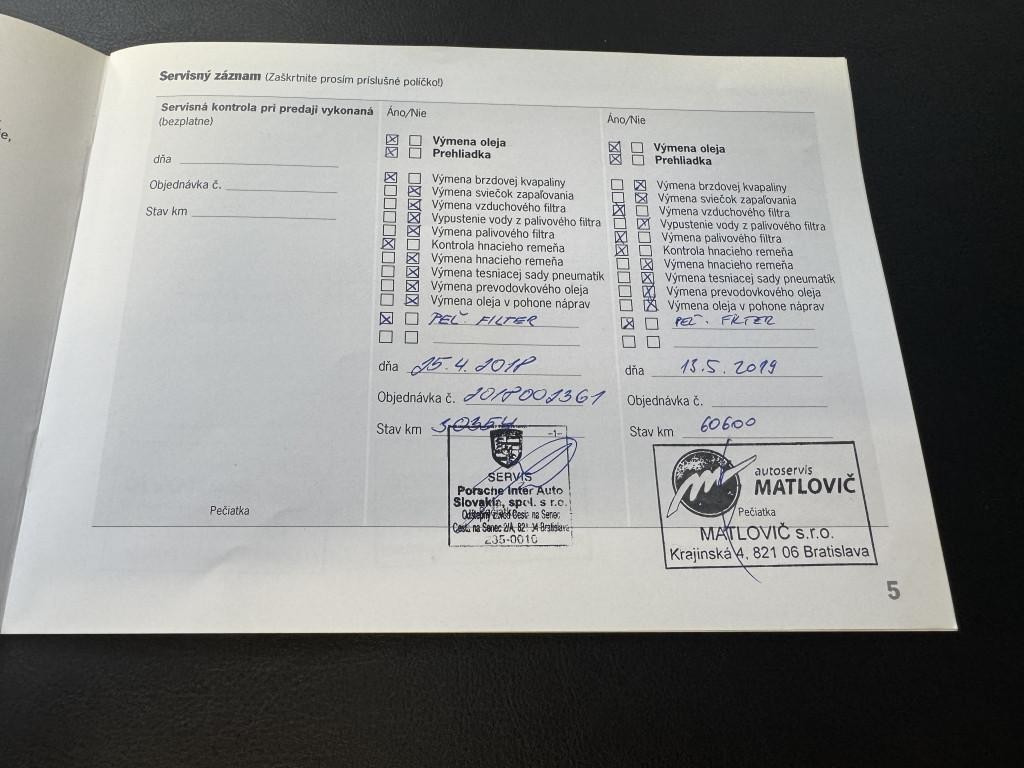 e,
Servisný záznam (Zaškrtnite prosím príslušné políčko!)
Servisná kontrola pri predaji vykonaná
(bezplatne)
dňa
Objednávka č.
Stav km
Pečiatka
Áno/Nie
Výmena oleja
Prehliadka
Výmena brzdovej kvapaliny
Výmena sviečok zapaľovania
Výmena vzduchového filtra
Vypustenie vody z palivového filtra
Výmena palivového filtra
Kontrola hnacieho remeňa
Výmena hnacieho remeňa
Výmena tesniacej sady pneumatík
Výmena prevodovkového oleja
Výmena oleja v pohone náprav
PEĽ. FILTER
dňa 25.4.2018
Objednávka č. 2018002361
Stav km
-1-
SERVIS
Porsche Inter Auto
Slovakia, spol. s r.o.
Odštepný závod Cesta na Senec
Cesta na Senec 2/A, 821 04 Bratislava
235-0010
Áno/Nie
Výmena oleja
Prehliadka
Výmena brzdovej kvapaliny
Výmena sviečok zapaľovania
Výmena vzduchového filtra
Vypustenie vody z palivového filtra
Výmena palivového filtra
Kontrola hnacieho remeňa
Výmena hnacieho remeňa
Výmena tesniacej sady pneumatík
Výmena prevodovkového oleja
Výmena oleja v pohone náprav
PEĽ. FILTER
dňa 13.5.2019
Objednávka č.
Stav km 60600
autoservis
MATLOVIČ
Pečiatka
MATLOVIČ s.r.o.
Krajinská 4, 821 06 Bratislava
5